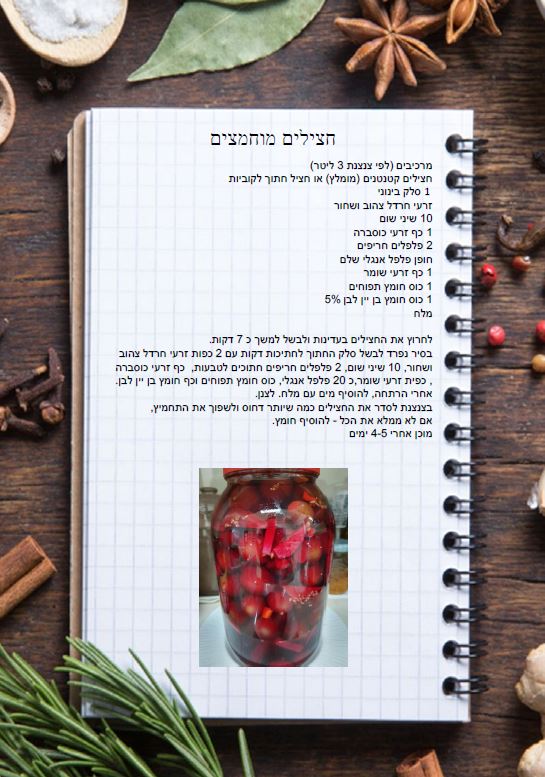 חצילים מוחמצים
מרכיבים (לפי צנצנת 3 ליטר)
חצילים קטנטנים (מומלץ) או חציל חתוך לקוביות
1 סלק בינוני
זרעי חרדל צהוב ושחור
10 שיני שום
1 כף זרעי כוסברה
2 פלפלים חריפים
חופן פלפל אנגלי שלם
1 כף זרעי שומר
1 כוס חומץ תפוחים
1 כוס חומץ בן יין לבן 5%
מלח
לחרוץ את החצילים בעדינות ולבשל למשך כ 7 דקות.
בסיר נפרד לבשל סלק החתוך לחתיכות דקות עם 2 כפות זרעי חרדל צהוב
ושחור, 10 שיני שום, 2 פלפלים חריפים חתוכים לטבעות, כף זרעי כוסברה
, כפית זרעי שומר,כ 20 פלפל אנגלי, כוס חומץ תפוחים וכף חומץ בן יין לבן.
אחרי הרתחה, להוסיף מים עם מלח. לצנן.
בצנצנת לסדר את החצילים כמה שיותר דחוס ולשפוך את התחמיץ,
אם לא ממלא את הכל - להוסיף חומץ.
מוכן אחרי 4-5 ימים